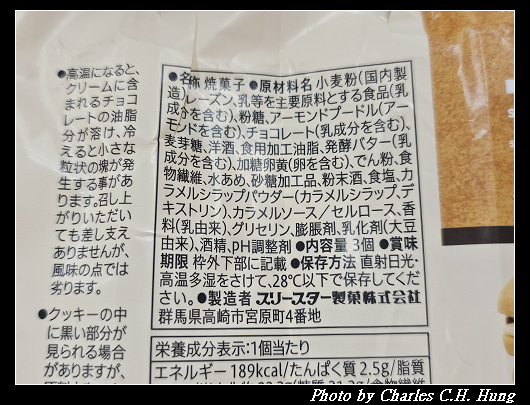 ●高温になると、
クリームに含
まれるチョコ
レートの油脂
分が溶け、冷
えると小さな
粒状の塊が発
生する事があ
ります。召し上
がりいただい
ても差し支え
ありませんが、
風味の点では
劣ります。
●クッキーの中
に黒い部分が
見られる場合
がありますが、
●名称 焼菓子 ●原材料名 小麦粉(国内製
造)、レーズン、乳等を主要原料とする食品(乳
成分を含む)、粉糖、アーモンドプードル(アー
モンドを含む)、チョコレート(乳成分を含む)、
麦芽糖、洋酒、食用加工油脂、発酵バター(乳
成分を含む)、加糖卵黄(卵を含む)、でん粉、食
物繊維、水あめ、砂糖加工品、粉末酒、食塩、カ
ラメルシラップパウダー(カラメルシラップ、デ
キストリン)、カラメルソース/セルロース、香
料(乳由来)、グリセリン、膨脹剤、乳化剤(大豆
由来)、酒精、pH調整剤 ●内容量 3個 ●賞味
期限 枠外下部に記載 ●保存方法 直射日光・
高温多湿をさけて、28℃以下で保存してくだ
さい。●製造者 スリースター製菓株式会社
群馬県高崎市宮原町4番地
栄養成分表示:1個当たり
エネルギー 189kcal/たんぱく質 2.5g/脂質
Photo by Charles C.H. Hung